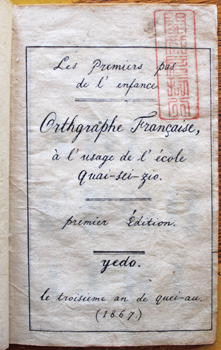 Les Premiers pas
de l'enfance
Orthgraphe Française,
à l'usage de l'école
Quai-sei-zio.
premier Édition.
yedo.
le troisieme an de quei-au.
(1867.)